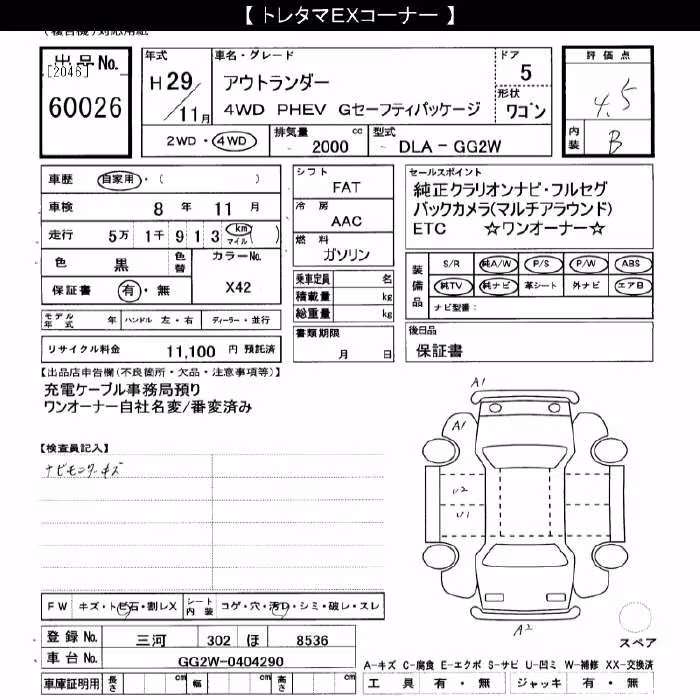 【 トレタマEXコーナー 】
出品No.
[2046]
60026
年式
H29/11月
車名・グレード
アウトランダー
4WD PHEV Gセーフティパッケージ
ドア
5
形状
ワゴン
評価点
4.5
内装
B
2WD・4WD
排気量
2000 cc
型式
DLA - GG2W
車歴
自家用・( )
車検
8 年 11 月
走行
5万 1千 9 1 3 km マイル ( )
色
黒
色替
カラーNo.
X42
保証書
有・無
モデル年式
年
ハンドル 左・右
ディーラー・並行
リサイクル料金
11,100 円 預託済
シフト
FAT
冷房
AAC
燃料
ガソリン
乗車定員 名
積載量 kg
総重量 kg
書類期限
月 日
セールスポイント
純正クラリオンナビ・フルセグ
バックカメラ(マルチアラウンド)
ETC ☆ワンオーナー☆
装備品
S/R 純A/W P/S P/W ABS
純TV 純ナビ 革シート 外ナビ エアB
ナビ型番:
後日品
保証書
【出品店申告欄(不良箇所・欠品・注意事項等)】
充電ケーブル事務局預り
ワンオーナー自社名変/番変済み
【検査員記入】
ナビモニターキズ
A1
A1
U2
U1
A2
スペア
FW キズ・トビ石・割レX
シート内装 コゲ・穴・汚レ・シミ・破レ・スレ
登録No. 三河 302 ほ 8536
車台No. GG2W-0404290
車庫証明用 長さ cm 幅 cm 高さ cm
A-キズ C-腐食 E-エクボ S-サビ U-凹ミ W-補修 XX-交換済
工具 有・無 ジャッキ 有・無